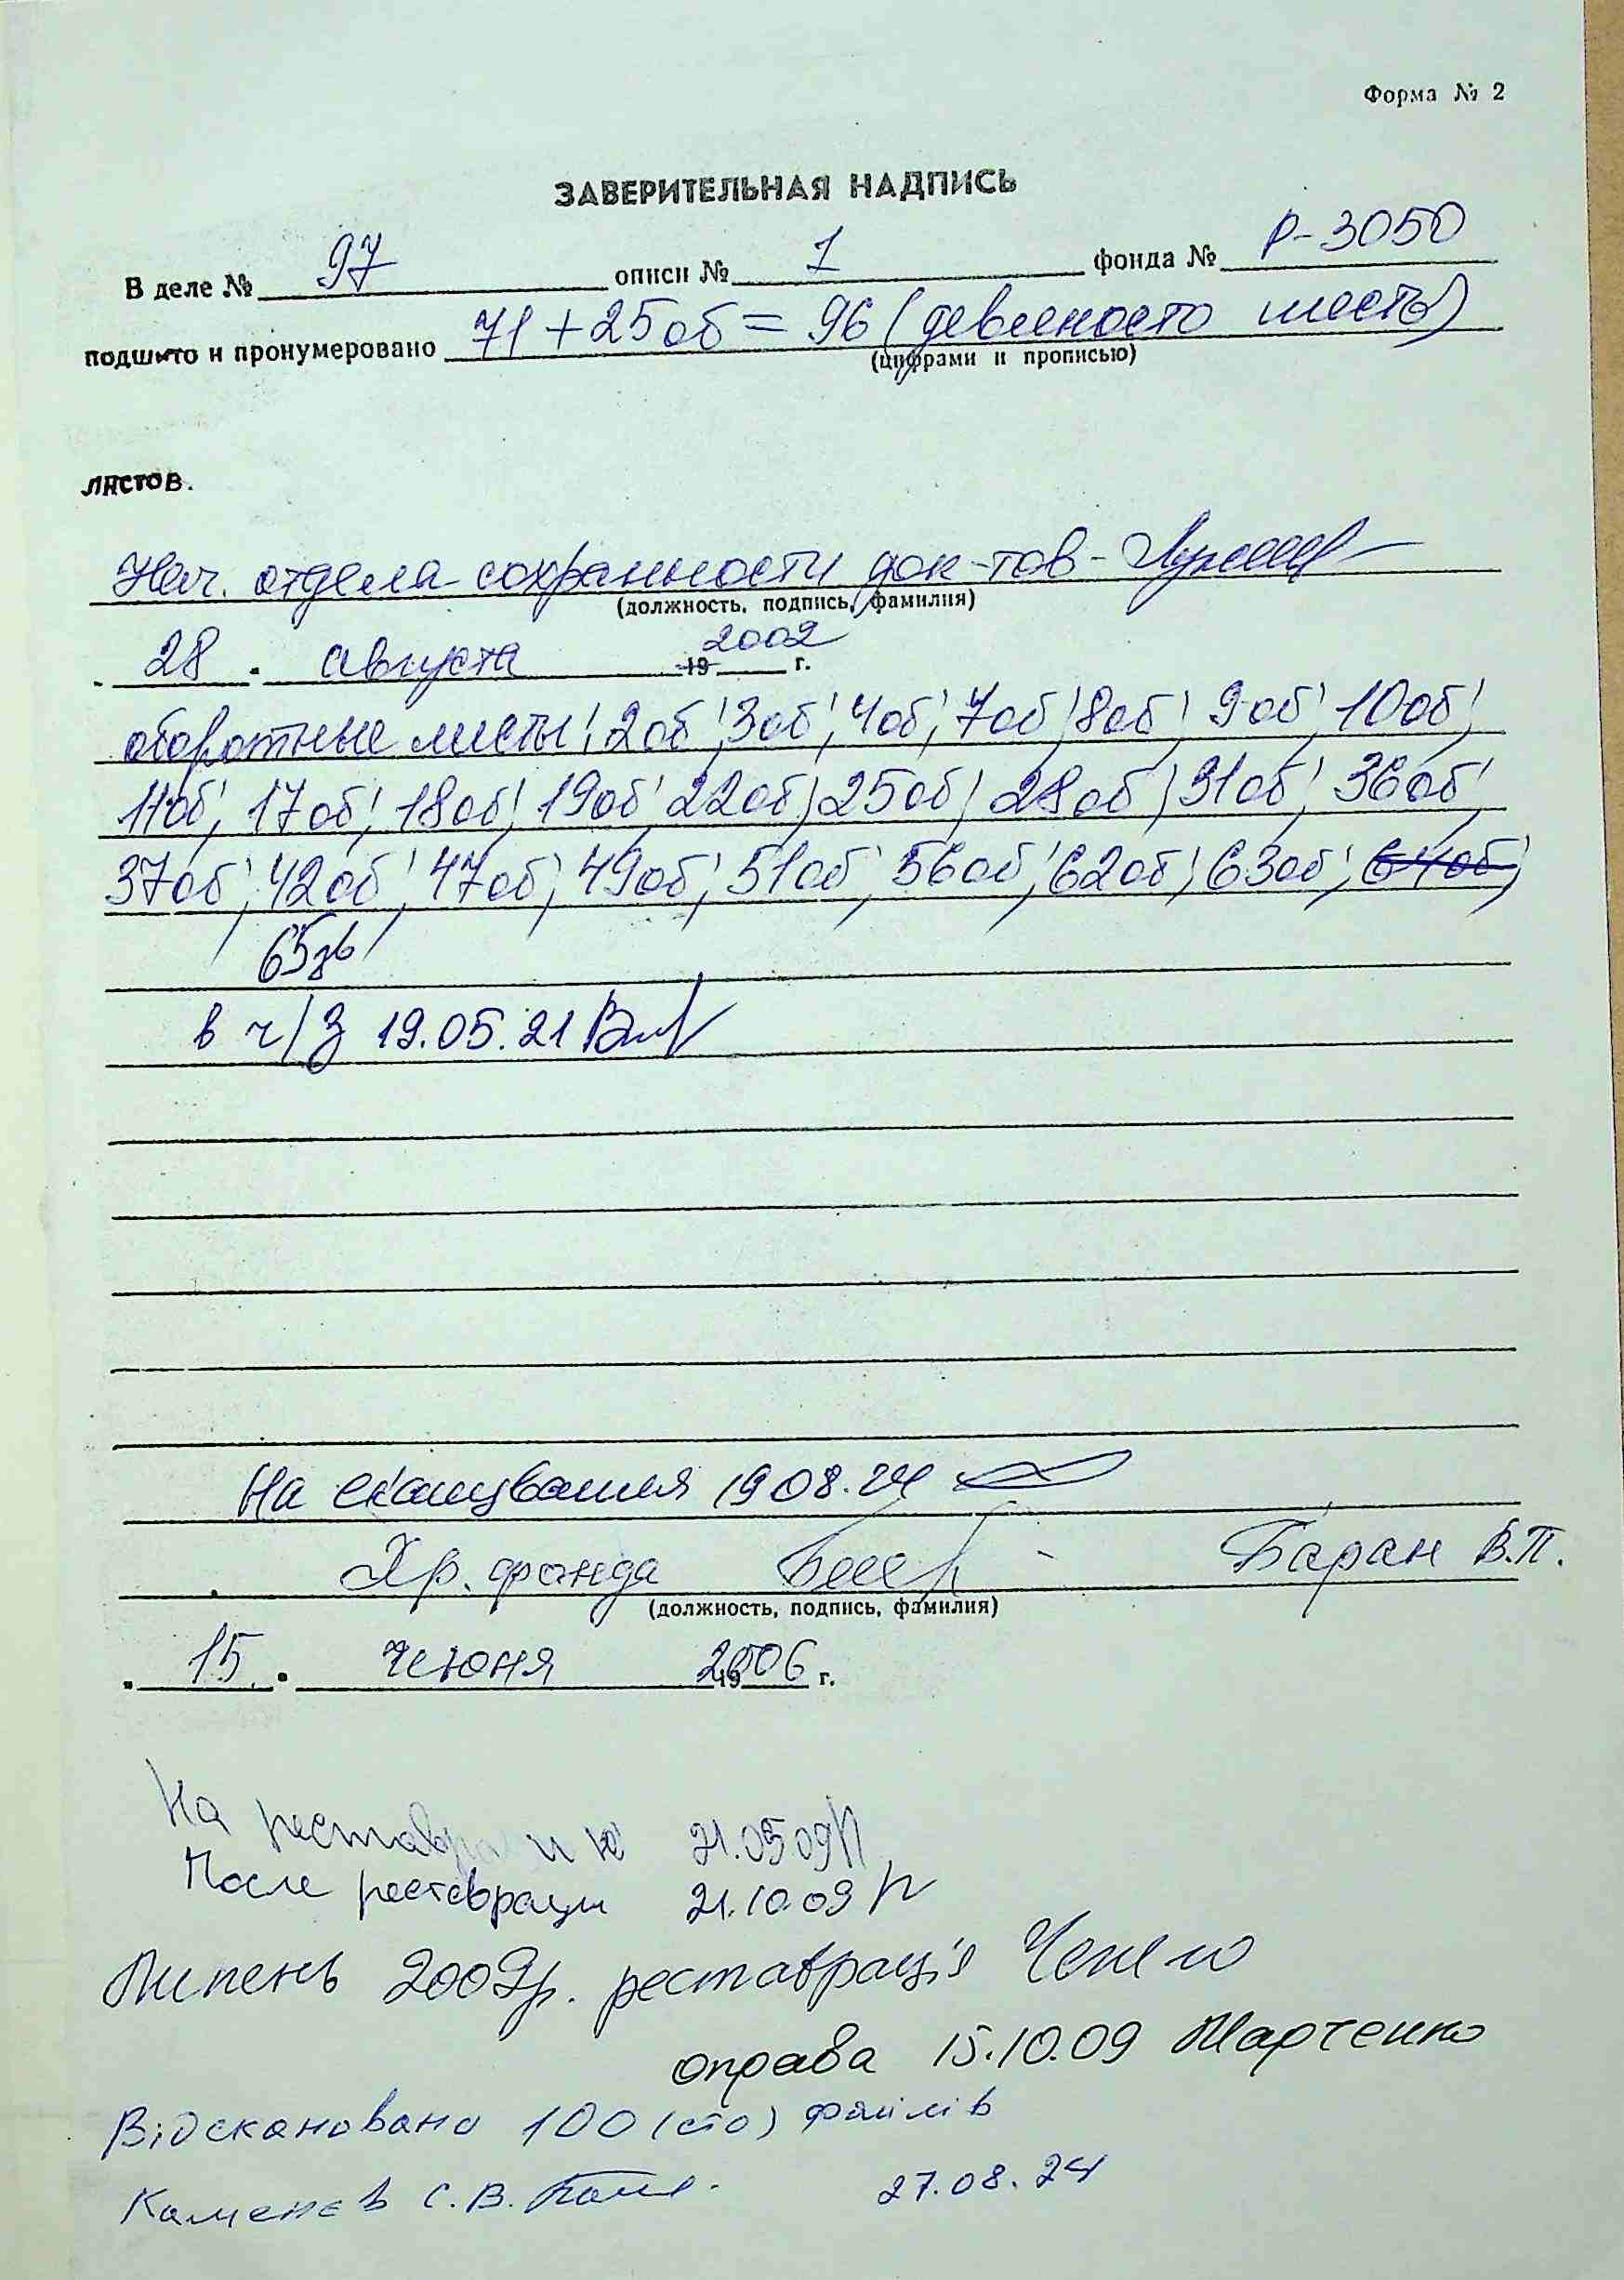 Форма № 2
ЗАВЕРИТЕЛЬНАЯ НАДПИСЬ
В деле № 97 описи № 1 фонда № Р-3050
подшито и пронумеровано 71 + 25 об = 96 (девяносто шесть)
(цифрами и прописью)
листов.
Нач. отдела сохранности док-тов-
(должность, подпись, фамилия)
28 августа 19 2002 г.
оборотные листы: 2об, 3об, 4об, 7об, 8об, 9об, 10об,
11об, 17об, 18об, 19об, 22об, 25об, 28об, 31об, 36об,
37об, 42об, 47об, 49об, 51об, 56об, 62об, 63об, 64об,
65зв
в ч/з 19.05.21
На сканування 19 08.24
Хр. фонда Баран В.П.
(должность, подпись, фамилия)
15 июня 2006 г.
На реставрацию 21.05 09
После реставрации 21.10.09
Липень 2009р. реставрація
оправа 15.10.09 Марченко
Відскановано 100 (сто) файлів
Каменєв С.В. 27.08.24